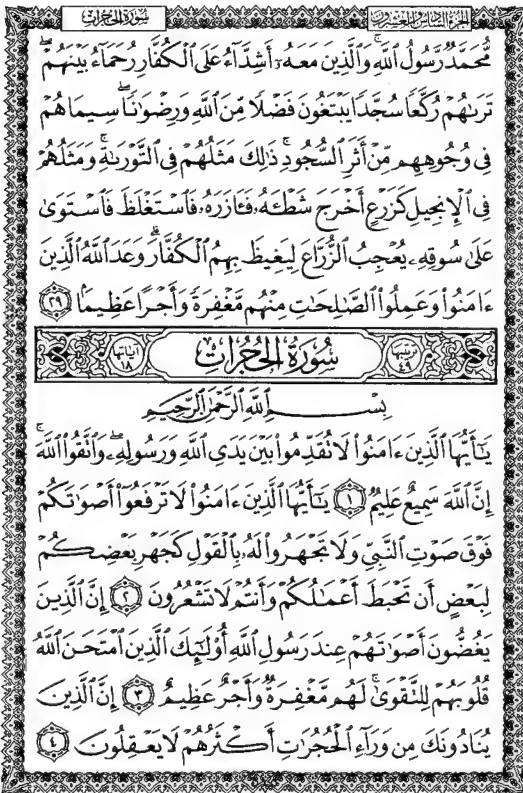 الجزء السادس والعشرون سورة الحجرات
مُّحَمَّدٌ رَّسُولُ ٱللَّهِ وَٱلَّذِينَ مَعَهُۥٓ أَشِدَّآءُ عَلَى ٱلْكُفَّارِ رُحَمَآءُ بَيْنَهُمْ
تَرَىٰهُمْ رُكَّعًا سُجَّدًا يَبْتَغُونَ فَضْلًا مِّنَ ٱللَّهِ وَرِضْوَٰنًا سِيمَاهُمْ
فِى وُجُوهِهِم مِّنْ أَثَرِ ٱلسُّجُودِ ذَٰلِكَ مَثَلُهُمْ فِى ٱلتَّوْرَىٰةِ وَمَثَلُهُمْ
فِى ٱلْإِنجِيلِ كَزَرْعٍ أَخْرَجَ شَطْـَٔهُۥ فَـَٔازَرَهُۥ فَٱسْتَغْلَظَ فَٱسْتَوَىٰ
عَلَىٰ سُوقِهِۦ يُعْجِبُ ٱلزُّرَّاعَ لِيَغِيظَ بِهِمُ ٱلْكُفَّارَ وَعَدَ ٱللَّهُ ٱلَّذِينَ
ءَامَنُوا۟ وَعَمِلُوا۟ ٱلصَّٰلِحَٰتِ مِنْهُم مَّغْفِرَةً وَأَجْرًا عَظِيمًۢا ٢٩
ترتيبها ٤٩ سُورَةُ الحُجُرَاتِ آياتها ١٨
بِسْمِ ٱللَّهِ ٱلرَّحْمَٰنِ ٱلرَّحِيمِ
يَٰٓأَيُّهَا ٱلَّذِينَ ءَامَنُوا۟ لَا تُقَدِّمُوا۟ بَيْنَ يَدَىِ ٱللَّهِ وَرَسُولِهِۦ وَٱتَّقُوا۟ ٱللَّهَ
إِنَّ ٱللَّهَ سَمِيعٌ عَلِيمٌ ١ يَٰٓأَيُّهَا ٱلَّذِينَ ءَامَنُوا۟ لَا تَرْفَعُوٓا۟ أَصْوَٰتَكُمْ
فَوْقَ صَوْتِ ٱلنَّبِىِّ وَلَا تَجْهَرُوا۟ لَهُۥ بِٱلْقَوْلِ كَجَهْرِ بَعْضِكُمْ
لِبَعْضٍ أَن تَحْبَطَ أَعْمَٰلُكُمْ وَأَنتُمْ لَا تَشْعُرُونَ ٢ إِنَّ ٱلَّذِينَ
يَغُضُّونَ أَصْوَٰتَهُمْ عِندَ رَسُولِ ٱللَّهِ أُو۟لَٰٓئِكَ ٱلَّذِينَ ٱمْتَحَنَ ٱللَّهُ
قُلُوبَهُمْ لِلتَّقْوَىٰ لَهُم مَّغْفِرَةٌ وَأَجْرٌ عَظِيمٌ ٣ إِنَّ ٱلَّذِينَ
يُنَادُونَكَ مِن وَرَآءِ ٱلْحُجُرَٰتِ أَكْثَرُهُمْ لَا يَعْقِلُونَ ٤